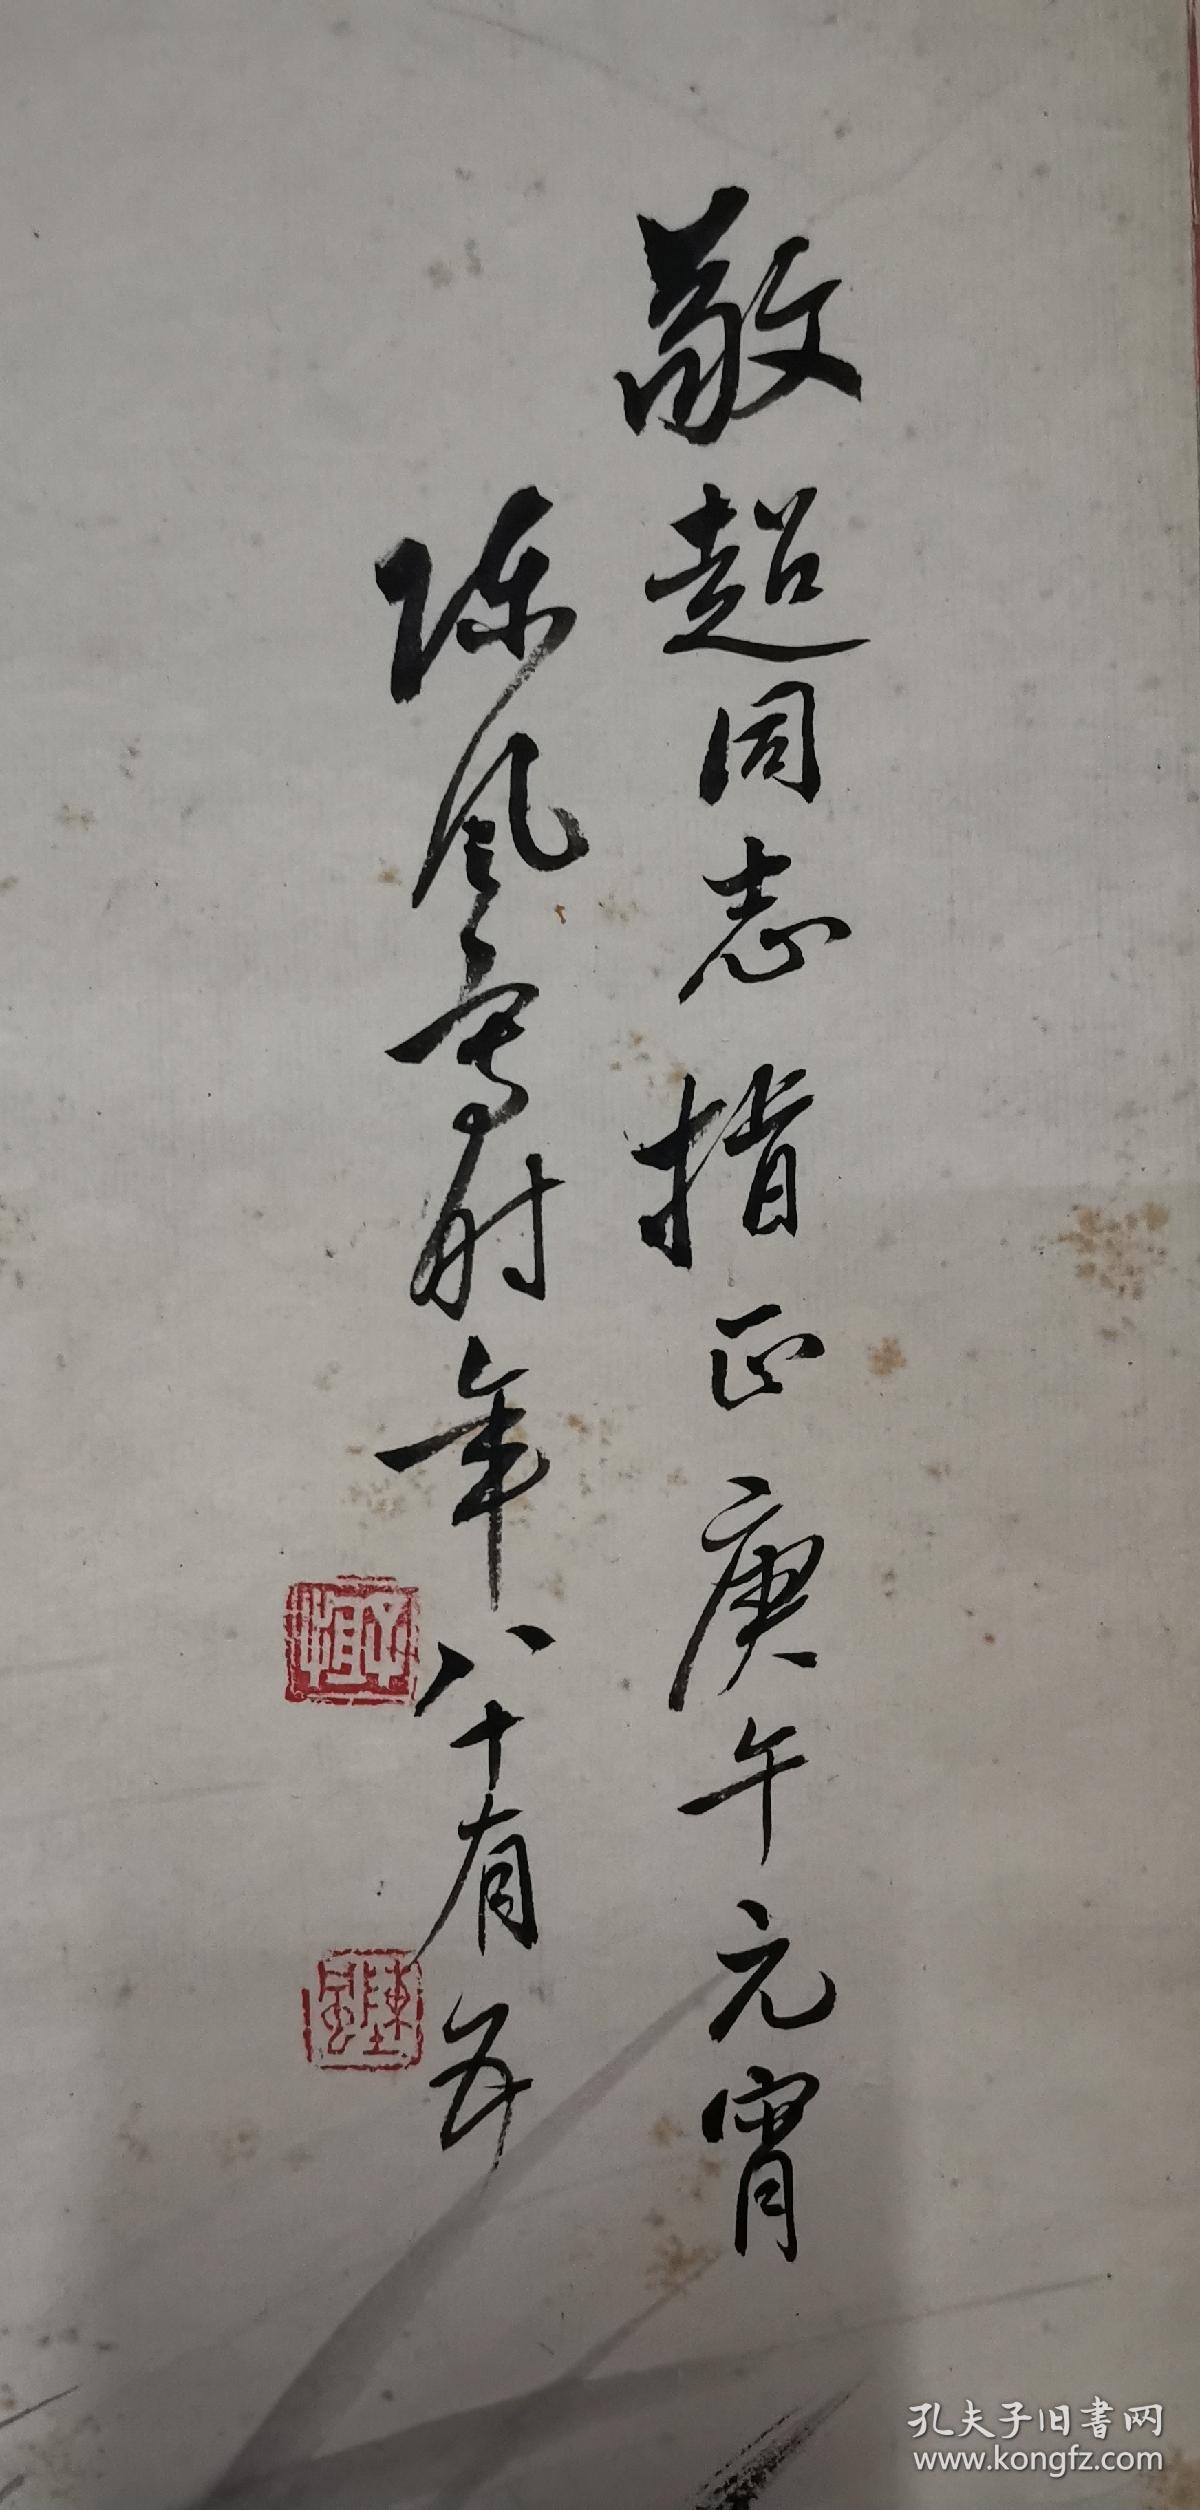 敬超同志指正庚午元宵
陈风写时年八十有五
陳風
孔夫子旧書网
www.kongfz.com